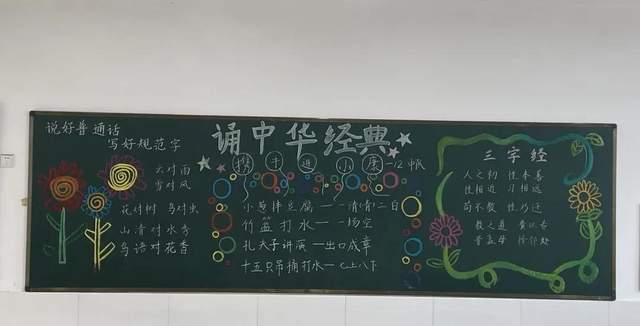 说好普通话
写好规范字
云对雨
雪对风
花对树 鸟对虫
山清对水秀
鸟语对花香
诵中华经典
携手进小康
小葱拌豆腐——一清(青)二白
竹篮打水——一场空
孔夫子讲演——出口成章
十五只吊桶打水——七上八下
三字经
人之初 性本善
性相近 习相远
苟不教 性乃迁
教之道 贵以专
昔孟母 择邻处